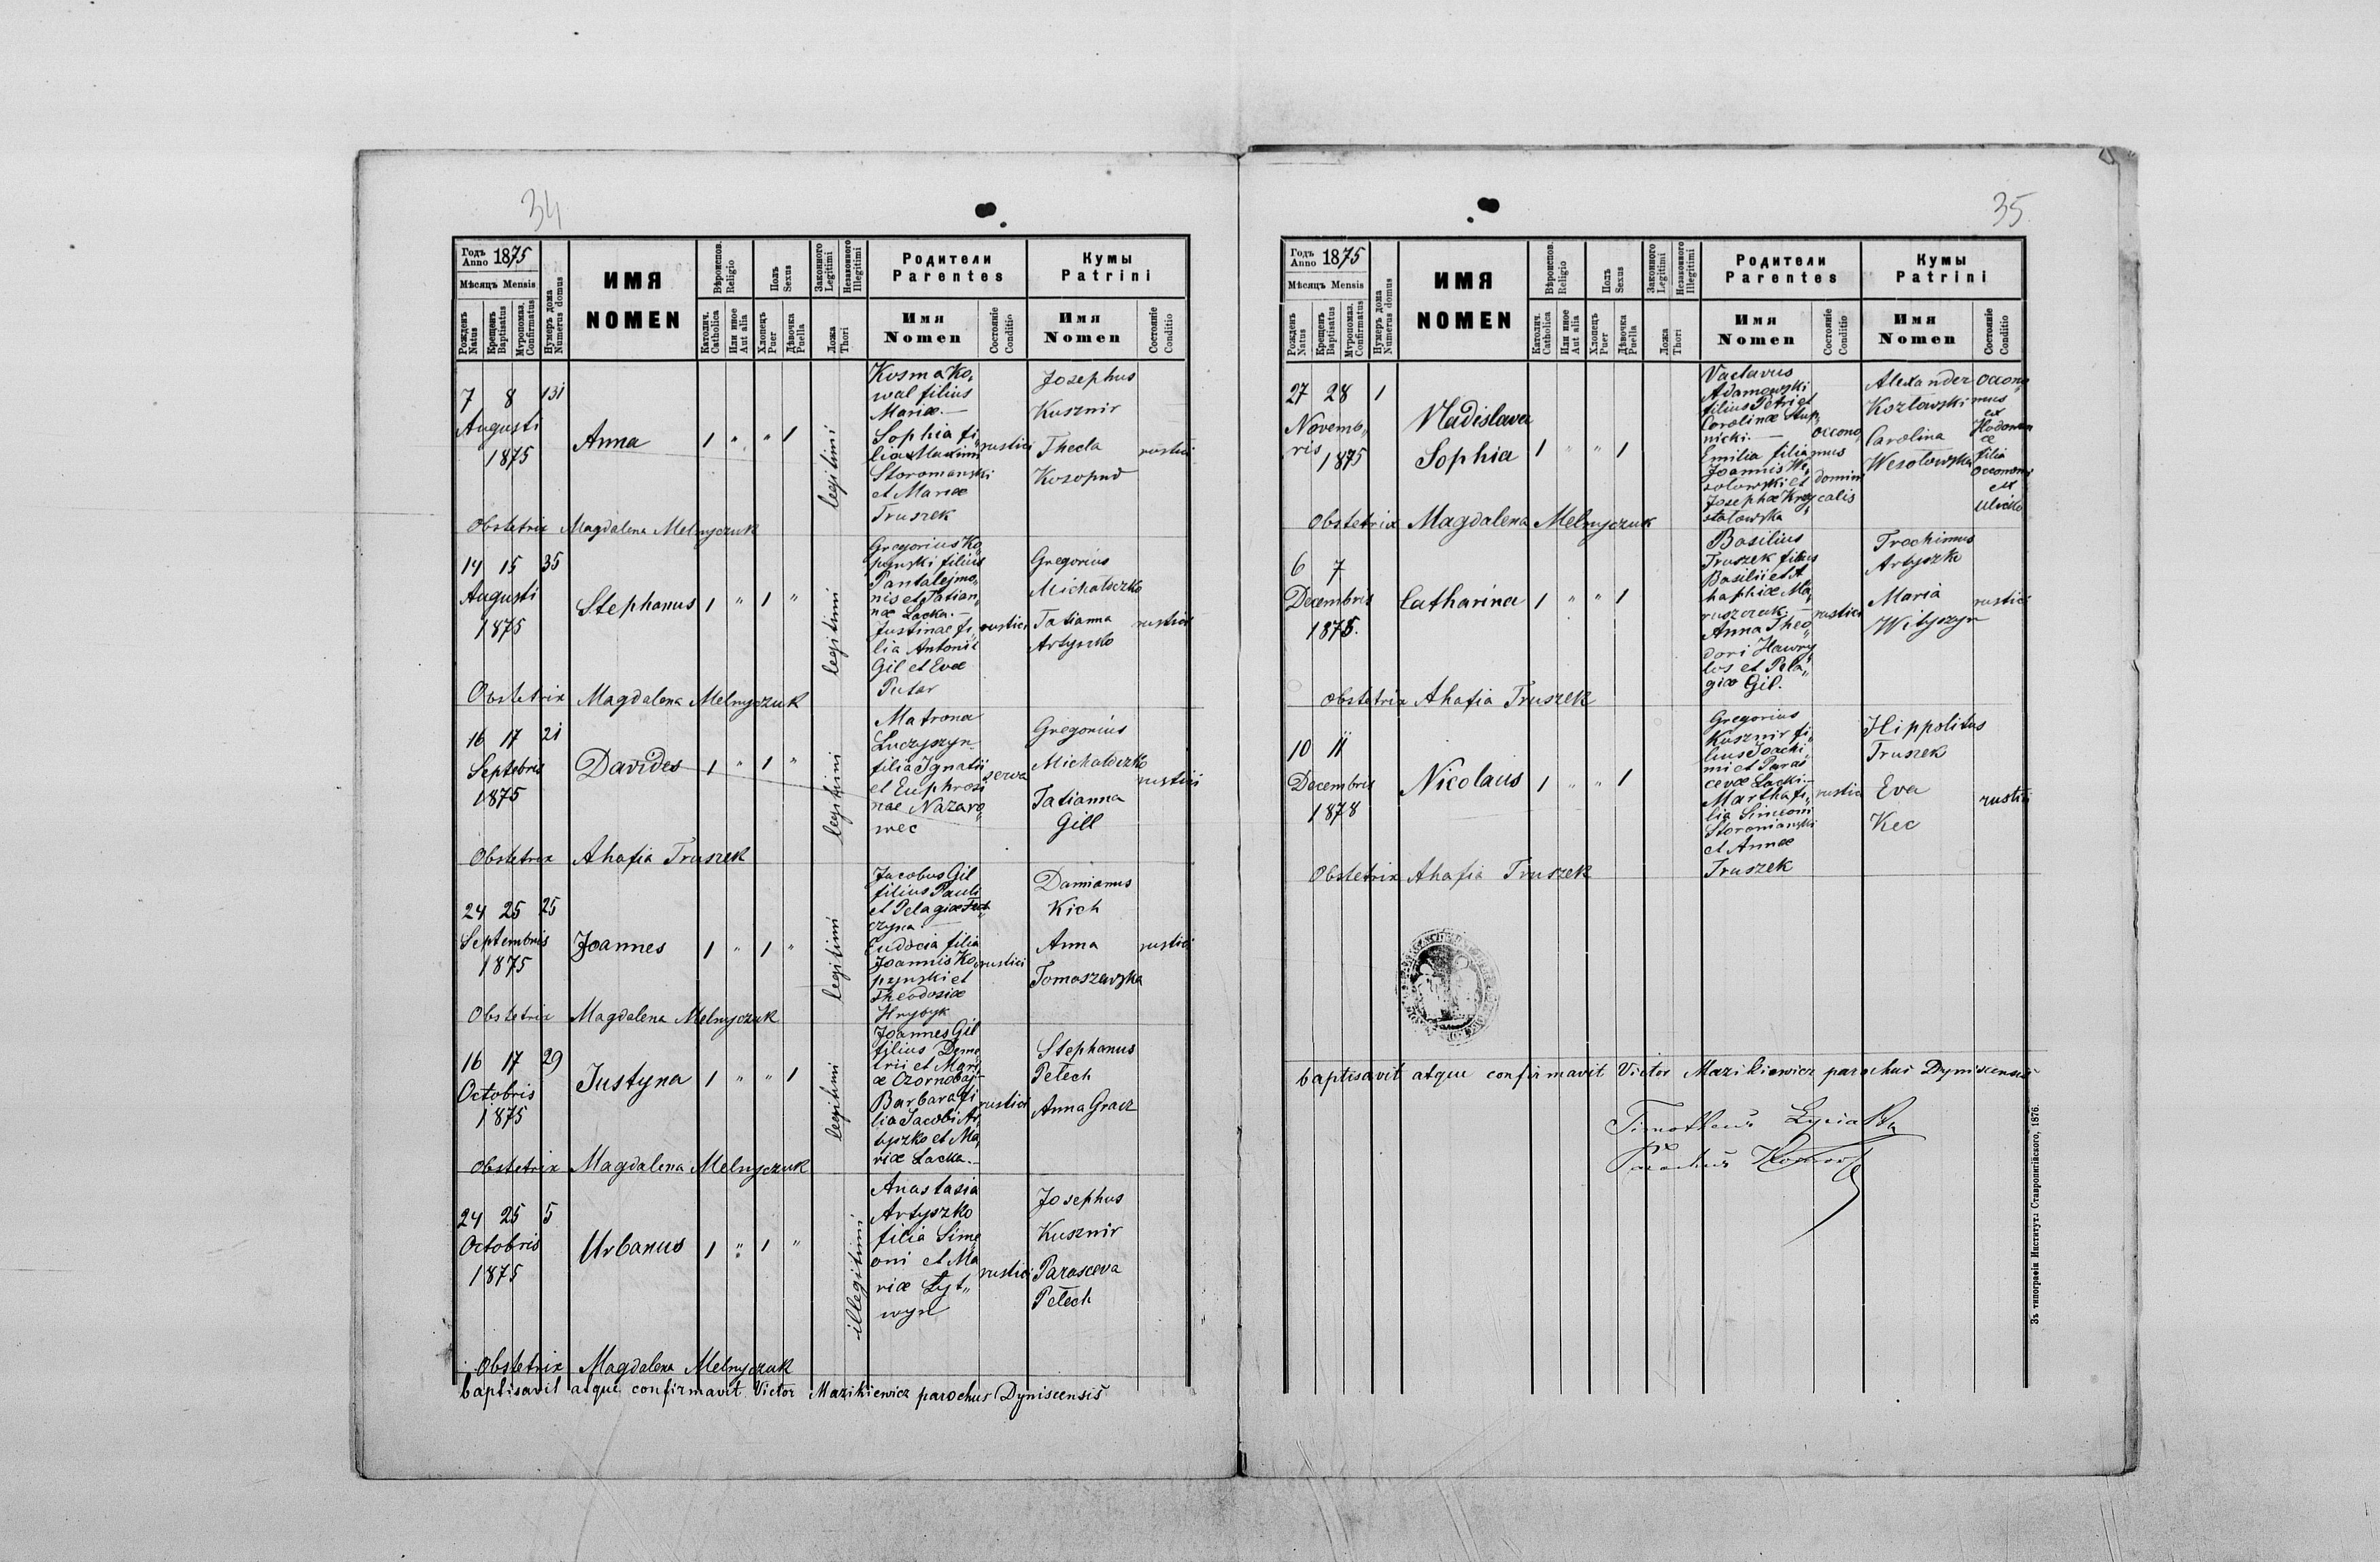 34
Годъ Anno 1875
Мѣсяцъ Mensis
Рожденъ Natus
Крещенъ Baptisatus
Мѵропомаз. Confirmatus
Нумеръ дома Numerus domus
ИМЯ
NOMEN
Вѣроиспов. Religio
Католич. Catholica
Или иное Aut alia
Полъ Sexus
Хлопецъ Puer
Дѣвочка Puella
Законного Legitimi
Незаконного Illegitimi
Ложа Thori
Родители
Parentes
Имя
Nomen
Состояніе Conditio
Кумы
Patrini
Имя
Nomen
Состояніе Conditio
7 8 131
Augusti
1875
Anna
1 " " 1
legitimi
Kosma Ko„
wal filius
Mariæ. —
Sophia fi„
lia Maximi
Storomanski
et Mariæ
Truszek
rustici
Josephus
Kusznir
Thecla
Kosopud
rustici
Obstetrix Magdalena Melnyczuk
14 15 35
Augusti
1875
Stephanus
1 " 1 "
legitimi
Gregorius Ko„
pynski filius
Pantalejmo„
nis et Tatian„
næ Lacka. —
Justinae fi„
lia Antonii
Gil et Evæ
Putar
rustici
Gregorius
Michałeczko
Tatianna
Artyszko
rustici
Obstetrix Magdalena Melnyczuk
16 17 21
Septebris
1875
Davides
1 " 1 "
legitimi
Matrona
Luczyszyn
filia Ignatii
et Euphrosi
nae Nazaro„
wec
serva
Gregorius
Michałeczko
Tatianna
Gill
rusticii
Obstetrix Ahafia Truszek
24 25 25
Septembris
1875
Joannes
1 " 1 "
legitimi
Jacobus Gil
filius Pauli
et Pelagiæ
czyna —
Eudocia filia
Joannis Ko„
pynski et
Theodosiæ
Hrybyk
rustici
Damianus
Kich
Anna
Tomaszewska
rustici
Obstetrix Magdalena Melnyczuk
16 17 29
Octobris
1875
Justyna
1 " " 1
legitimi
Joannes Gil
filius Dyme„
trii et Mari„
æ Czornobaj—
Barbara fi
lia Jacobi Ar„
tyszko et Ma„
riæ Lacka. —
rustici
Stephanus
Petech
Anna Gracz
Obstetrix Magdalena Melnyczuk
24 25 5
Octobris
1875
Urbanus
1 " 1 "
illegitimi
Anastasia
Artyszko
filia Sime„
oni et Ma„
riæ Lyt„
wyn
rustici
Josephus
Kusznir
Parasceva
Petech
Obstetrix Magdalena Melnyczuk
baptisavit atque confirmavit Victor Mazikiewicz parochus Dyniscensis
35
Годъ Anno 1875
Мѣсяцъ Mensis
Рожденъ Natus
Крещенъ Baptisatus
Мѵропомаз. Confirmatus
Нумеръ дома Numerus domus
ИМЯ
NOMEN
Вѣроиспов. Religio
Католич. Catholica
Или иное Aut alia
Полъ Sexus
Хлопецъ Puer
Дѣвочка Puella
Законного Legitimi
Незаконного Illegitimi
Ложа Thori
Родители
Parentes
Имя
Nomen
Состояніе Conditio
Кумы
Patrini
Имя
Nomen
Состояніе Conditio
27 28 1
Novemb„
ris
1875
Vladislava
Sophia
1 " " 1
Vaclavus
Adamowski
filius Petri et
Carolinæ Stup„
nicki. —
Emilia filia
Joannis We„
solowski et
Josephæ Krzy„
stałowska
occono„
mus
domini
calis
Alexander
Kozłowski
Carolina
Wesołowska
occono„
mus
ex
filia
occonomi
ex
Obstetrix Magdalena Melnyczuk
6 7
Decembris
1875.
Catharina
1 " " 1
Basilius
Truszek filius
Basilii et A
haphiæ Ma„
ruszczak. —
Anna Theo„
dori Hawry„
los et Pela„
giæ Gil.
rustici
Trochimus
Artyszko
Maria
Wityszyn
rustici
Obstetrix Ahafia Truszek
10 11
Decembris
1878
Nicolaus
1 " " 1
Gregorius
Kusznir fi„
lius Joachi„
mi et Paras
cevæ Lacki.—
Martha fi„
lia Simeoni
Storomanski
et Annæ
Truszek
rustici
Hippolitus
Truszek
Eva
Kec
rustici
Obstetrix Ahafia Truszek
baptisavit atque confirmavit Victor Mazikiewicz parochus Dyniscensis
Timotheus
Parochus
Зъ типографіи Института Ставропигійского, 1876.